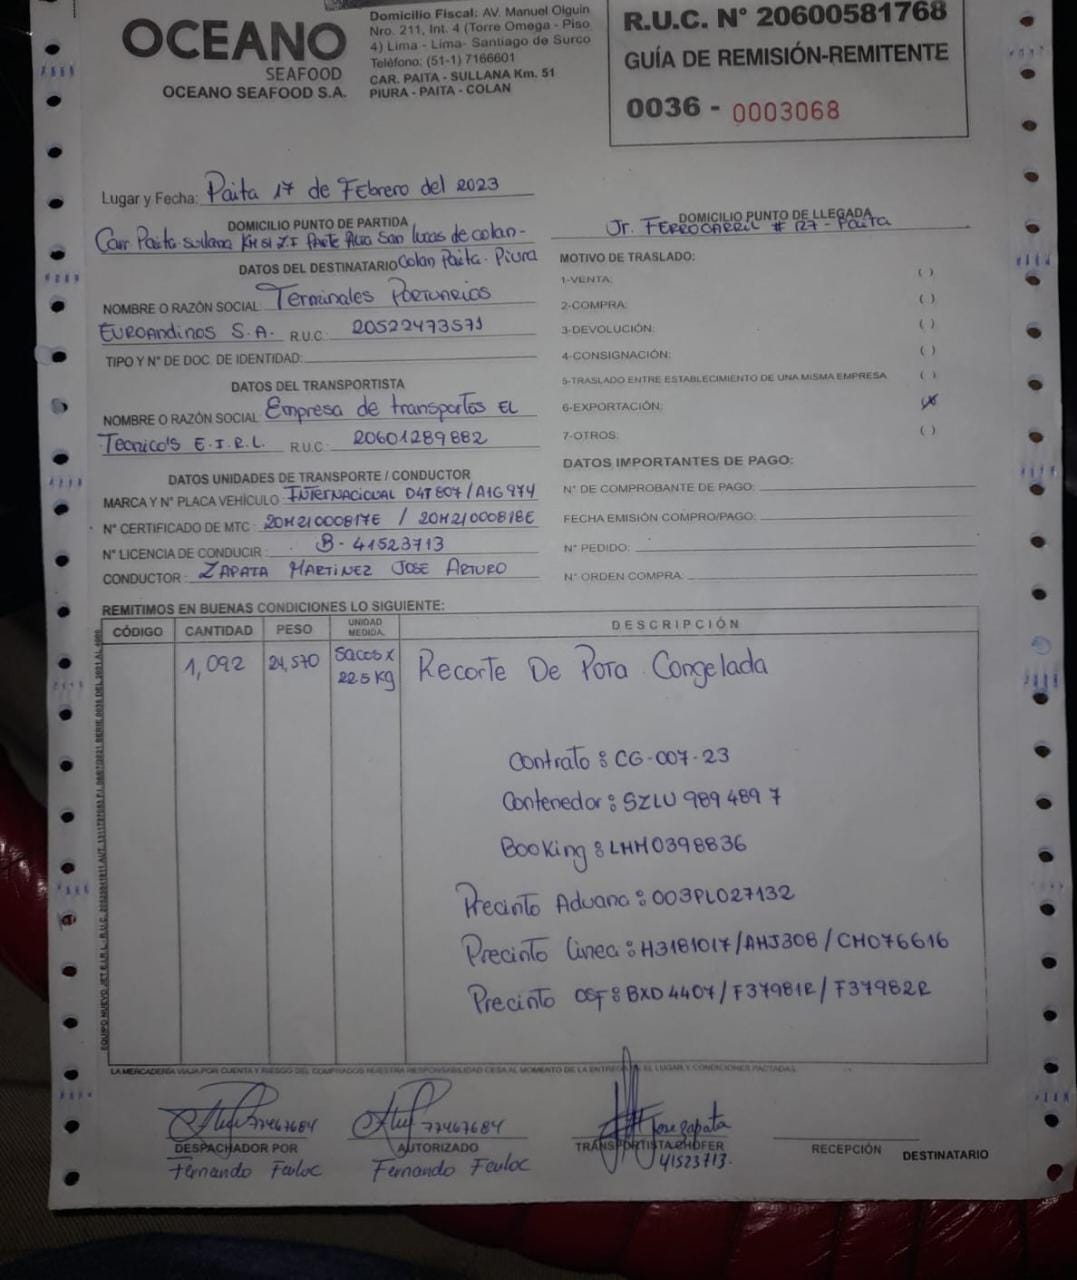 OCEANO
SEAFOOD
OCEANO SEAFOOD S.A.
Domicilio Fiscal: AV. Manuel Olguin
Nro. 211, Int. 4 (Torre Omega - Piso
4) Lima - Lima- Santiago de Surco
Teléfono: (51-1) 7166601
CAR. PAITA - SULLANA Km. 51
PIURA - PAITA - COLAN
R.U.C. N° 20600581768
GUÍA DE REMISIÓN-REMITENTE
0036 - 0003068
Lugar y Fecha: Paita 17 de Febrero del 2023
DOMICILIO PUNTO DE PARTIDA
Carr Paita sullana KM 51 Z.I Parte Alta San lucas de colan-
Colan Paita. Piura
DOMICILIO PUNTO DE LLEGADA
Jr. FERROCARRIL # 127 - Paita
DATOS DEL DESTINATARIO
NOMBRE O RAZÓN SOCIAL: Terminales Portuarios
EUROAndinos S.A. R.U.C.: 20522473571
TIPO Y N° DE DOC. DE IDENTIDAD:
DATOS DEL TRANSPORTISTA
NOMBRE O RAZÓN SOCIAL: Empresa de transportes EL
Tecnico's E.I.R.L. R.U.C: 20601289882
DATOS UNIDADES DE TRANSPORTE / CONDUCTOR
MARCA Y N° PLACA VEHÍCULO: INTERNACIONAL D4T807/A1G974
N° CERTIFICADO DE MTC: 20M21000817E / 20M21000818E
N° LICENCIA DE CONDUCIR: B- 41523713
CONDUCTOR: ZAPATA MARTINEZ JOSE ARTURO
MOTIVO DE TRASLADO:
1-VENTA: ( )
2-COMPRA: ( )
3-DEVOLUCIÓN: ( )
4-CONSIGNACIÓN: ( )
5-TRASLADO ENTRE ESTABLECIMIENTO DE UNA MISMA EMPRESA ( )
6-EXPORTACIÓN: (X)
7-OTROS: ( )
DATOS IMPORTANTES DE PAGO:
N° DE COMPROBANTE DE PAGO:
FECHA EMISIÓN COMPRO/PAGO:
N° PEDIDO:
N° ORDEN COMPRA:
REMITIMOS EN BUENAS CONDICIONES LO SIGUIENTE:
CÓDIGO CANTIDAD PESO UNIDAD MEDIDA. DESCRIPCIÓN
1,092 24,570 Sacos x 22.5 Kg Recorte De Pota Congelada
Contrato : CG-007-23
Contenedor : SZLU 989 489 7
Booking : LHM0398836
Precinto Aduana : 003PL027132
Precinto Linea : H3181017/AHJ308/CH076616
Precinto OSF : BXD4407/F37981R/F37982R
LA MERCADERÍA VIAJA POR CUENTA Y RIESGO DEL COMPRADOR NUESTRA RESPONSABILIDAD CESA AL MOMENTO DE LA ENTREGA EN EL LUGAR Y CONDICIONES PACTADAS
77467684
DESPACHADOR POR
Fernando
77467684
AUTORIZADO
Fernando
Jose Zapata
TRANSPORTISTA CHOFER
41523713.
RECEPCIÓN DESTINATARIO